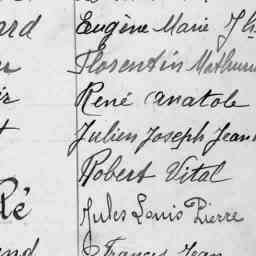 ard Eugène Marie J
Florentin Mathurin
René Anatole
Julien Joseph Jean
Robert Vital
Ré Jules Louis Pierre
and Francis Jean